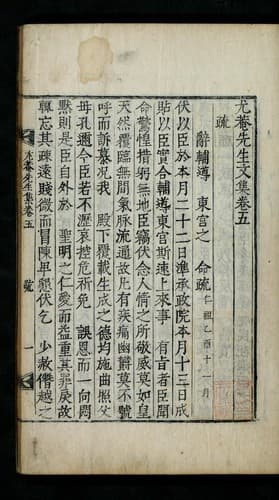 尤菴先生文集卷五
疏
辭輔導 東宮之 命疏 仁祖乙酉十一月
伏以臣於本月二十二日準承政院本月十三日成
貼以臣實合輔導東宮斯速上來事 有旨者臣聞
命驚惶措躬無地臣竊伏念人情之所敬威莫如皇
天然覆臨無間氣脉流通故凡有疾痛幽鬱莫不號
呼而訴籲況我 殿下覆載生成之德均施曲照父
母孔邇今臣若不瀝哀控危祈免 誤恩而一向悶
默則是臣自外於 聖明之仁愛而益重其罪戾故
輒忘其疎遠賤微而冒陳卑懇伏乞 少赦僭越之
尤菴先生集卷五 疏 一